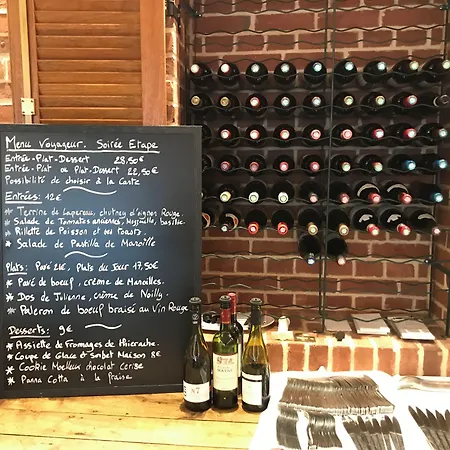 Menu Voyageur. Soirée Etape
Entrée-Plat-Dessert 28,50€
Entrée-Plat ou Plat-Dessert 22,50€
Possibilité de choisir à la Carte
Entrées: 12€
* Terrine de Lapereau, chutney d'oignon Rouge
* Salade de Tomates anciennes, Mozzarella, basilic.
* Rillette de Poisson et ses toasts.
* Salade de Pastilla de Maroille
Plats: Pavé 21€, Plats du Jour 17,50€
* Pavé de boeuf, crème de Maroilles.
* Dos de Julienne, crème de Noilly.
* Paleron de boeuf braisé au Vin Rouge
Desserts: 9€
* Assiette de fromages de Thiérache.
* Coupe de Glace & Sorbet Maison 8€
Cookie Moelleux chocolat cerise
* Panna Cotta à la fraise